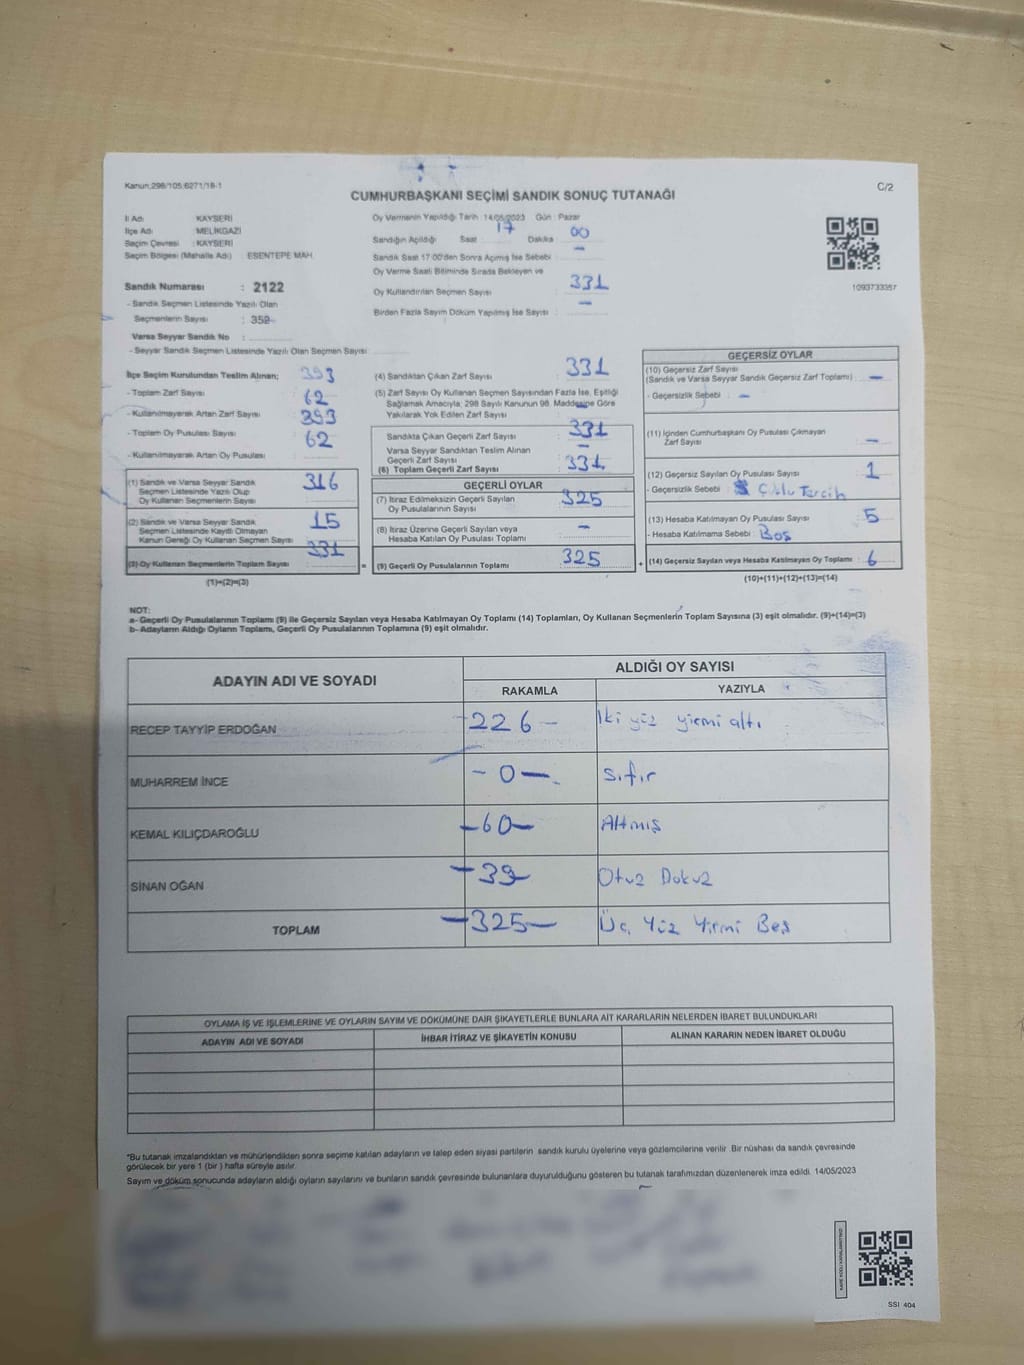 Kanun;298/105;6271/18-1
C/2
CUMHURBAŞKANI SEÇİMİ SANDIK SONUÇ TUTANAĞI
İl Adı : KAYSERİ
İlçe Adı : MELİKGAZİ
Seçim Çevresi : KAYSERİ
Seçim Bölgesi (Mahalle Adı) : ESENTEPE MAH.
Sandık Numarası : 2122
- Sandık Seçmen Listesinde Yazılı Olan
Seçmenlerin Sayısı : 352
Varsa Seyyar Sandık No :
- Seyyar Sandık Seçmen Listesinde Yazılı Olan Seçmen Sayısı
Oy Vermenin Yapıldığı Tarih 14/05/2023 Gün : Pazar
Sandığın Açıldığı Saat 17 Dakika 00
Sandık Saat 17:00'den Sonra Açımış İse Sebebi : -
Oy Verme Saati Bitiminde Sırada Bekleyen ve
Oy Kullandırılan Seçmen Sayısı 331
Birden Fazla Sayım Döküm Yapılmış İse Sayısı : -
1093733357
İlçe Seçim Kurulundan Teslim Alınan; 393
- Toplam Zarf Sayısı : 62
- Kullanılmayarak Artan Zarf Sayısı : 393
- Toplam Oy Pusulası Sayısı : 62
- Kullanılmayarak Artan Oy Pusulası :
(1) Sandık ve Varsa Seyyar Sandık
Seçmen Listesinde Yazılı Olup
Oy Kullanan Seçmenlerin Sayısı : 316
(2) Sandık ve Varsa Seyyar Sandık
Seçmen Listesinde Kayıtlı Olmayan
Kanun Gereği Oy Kullanan Seçmen Sayısı 15
(3) Oy Kullanan Seçmenlerin Toplam Sayısı : 331
(1)+(2)=(3)
(4) Sandıktan Çıkan Zarf Sayısı : 331
(5) Zarf Sayısı Oy Kullanan Seçmen Sayısından Fazla İse, Eşitliği
Sağlamak Amacıyla; 298 Sayılı Kanunun 98. Maddesine Göre
Yakılarak Yok Edilen Zarf Sayısı : -
Sandıkta Çıkan Geçerli Zarf Sayısı : 331
Varsa Seyyar Sandıktan Teslim Alınan
Geçerli Zarf Sayısı : -
(6) Toplam Geçerli Zarf Sayısı : 331
GEÇERLİ OYLAR
(7) İtiraz Edilmeksizin Geçerli Sayılan
Oy Pusulalarının Sayısı : 325
(8) İtiraz Üzerine Geçerli Sayılan veya
Hesaba Katılan Oy Pusulası Toplamı : -
= (9) Geçerli Oy Pusulalarının Toplamı : 325 +
GEÇERSİZ OYLAR
(10) Geçersiz Zarf Sayısı
(Sandık ve Varsa Seyyar Sandık Geçersiz Zarf Toplamı) : -
- Geçersizlik Sebebi : -
(11) İçinden Cumhurbaşkanı Oy Pusulası Çıkmayan
Zarf Sayısı : -
(12) Geçersiz Sayılan Oy Pusulası Sayısı : 1
- Geçersizlik Sebebi : Çoklu Tercih
(13) Hesaba Katılmayan Oy Pusulası Sayısı : 5
- Hesaba Katılmama Sebebi : Boş
(14) Geçersiz Sayılan veya Hesaba Katılmayan Oy Toplamı : 6
(10)+(11)+(12)+(13)=(14)
NOT:
a- Geçerli Oy Pusulalarının Toplamı (9) ile Geçersiz Sayılan veya Hesaba Katılmayan Oy Toplamı (14) Toplamları, Oy Kullanan Seçmenlerin Toplam Sayısına (3) eşit olmalıdır. (9)+(14)=(3)
b- Adayların Aldığı Oyların Toplamı, Geçerli Oy Pusulalarının Toplamına (9) eşit olmalıdır.
ADAYIN ADI VE SOYADI
ALDIĞI OY SAYISI
RAKAMLA YAZIYLA
RECEP TAYYİP ERDOĞAN -226- İki yüz yirmi altı
MUHARREM İNCE -0- sıfır
KEMAL KILIÇDAROĞLU -60- Altmış
SİNAN OĞAN -39 Otuz Dokuz
TOPLAM -325- Üç Yüz Yirmi Beş
OYLAMA İŞ VE İŞLEMLERİNE VE OYLARIN SAYIM VE DÖKÜMÜNE DAİR ŞİKAYETLERLE BUNLARA AİT KARARLARIN NELERDEN İBARET BULUNDUKLARI
ADAYIN ADI VE SOYADI İHBAR İTİRAZ VE ŞİKAYETİN KONUSU ALINAN KARARIN NEDEN İBARET OLDUĞU
*Bu tutanak imzalandıktan ve mühürlendikten sonra seçime katılan adayların ve talep eden siyasi partilerin sandık kurulu üyelerine veya gözlemcilerine verilir. Bir nüshası da sandık çevresinde
görülecek bir yere 1 (bir) hafta süreyle asılır.
Sayım ve döküm sonucunda adayların aldığı oyların sayılarını ve bunların sandık çevresinde bulunanlara duyurulduğunu gösteren bu tutanak tarafımızdan düzenlenerek imza edildi. 14/05/2023
SSI 404